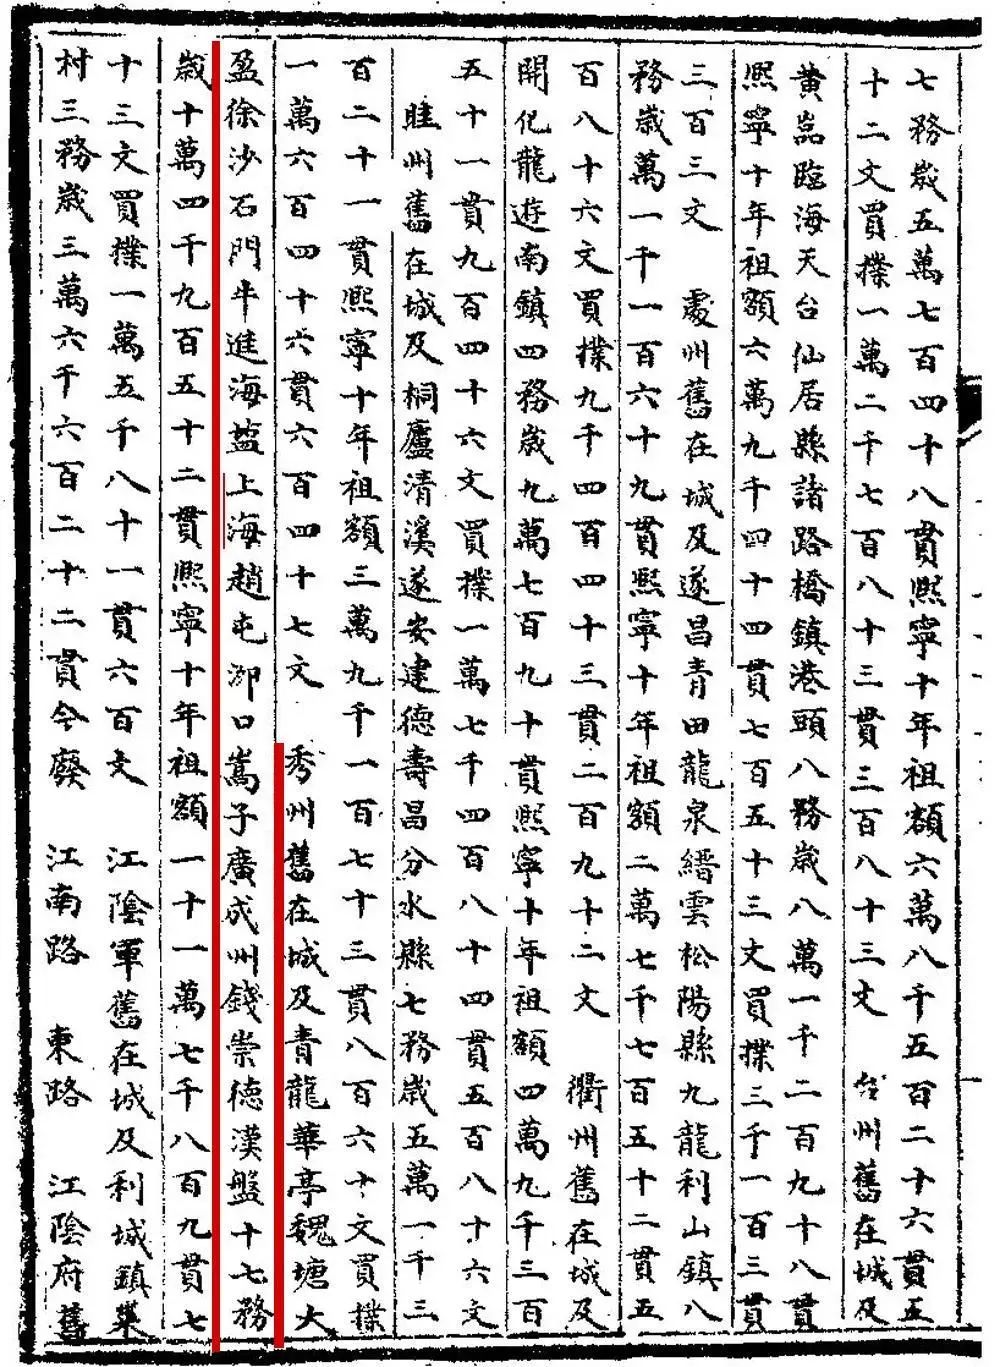 七務歲五萬七百四十八貫熙寧十年祖額六萬八千五百二十六貫五
十二文買撲一萬二千七百八十三貫三百八十三文　台州舊在城及
黃嵓臨海天台仙居縣諸路橋鎮港頭八務歲八萬一千二百九十八貫
熙寧十年祖額六萬九千四十四貫七百五十三文買撲三千一百三貫
三百三文　處州舊在城及遂昌青田龍泉縉雲松陽縣九龍利山鎮八
務歲萬一千一百六十九貫熙寧十年祖額二萬七千七百五十二貫五
百八十六文買撲九千四百四十三貫二百九十二文　衢州舊在城及
開化龍遊南鎮四務歲九萬七百九十貫熙寧十年祖額四萬九千三百
五十一貫九百四十六文買撲一萬七千四百八十四貫五百八十六文
睦州舊在城及桐廬清溪遂安建德壽昌分水縣七務歲五萬一千三
百二十一貫熙寧十年祖額三萬九千一百七十三貫八百六十文買撲
一萬六百四十六貫六百四十七文　秀州舊在城及青龍華亭魏塘大
盈徐沙石門牛進海盐上海趙屯泖口嵩子廣成州錢崇德漢盤十七務
歲十萬四千九百五十二貫熙寧十年祖額一十一萬七千八百九貫七
十三文買撲一萬五千八十一貫六百文　江陰軍舊在城及利城鎮葉
村三務歲三萬六千六百二十二貫今廢　江南路　東路　江陰府舊